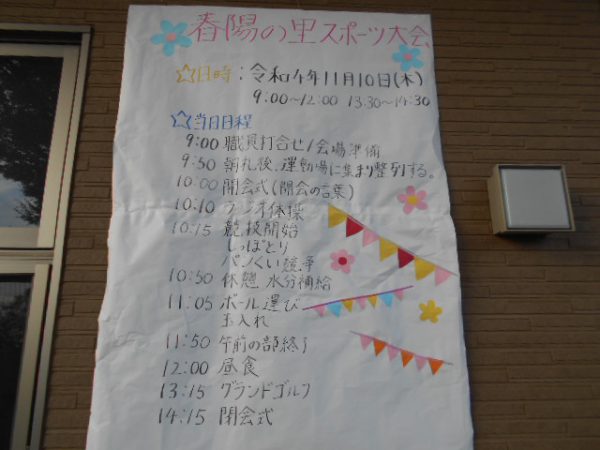 春陽の里スポーツ大会
☆日時：令和4年11月10日(木)
9:00〜12:00 13:30〜14:30
☆当日日程
9:00 職員打合せ/会場準備
9:50 朝礼後、運動場に集まり整列する。
10:00 開会式(開会の言葉)
10:10 ラジオ体操
10:15 競技開始
しっぽとり
パンくい競争
10:50 休憩 水分補給
11:05 ボール運び
玉入れ
11:50 午前の部終了
12:00 昼食
13:15 グランドゴルフ
14:15 閉会式